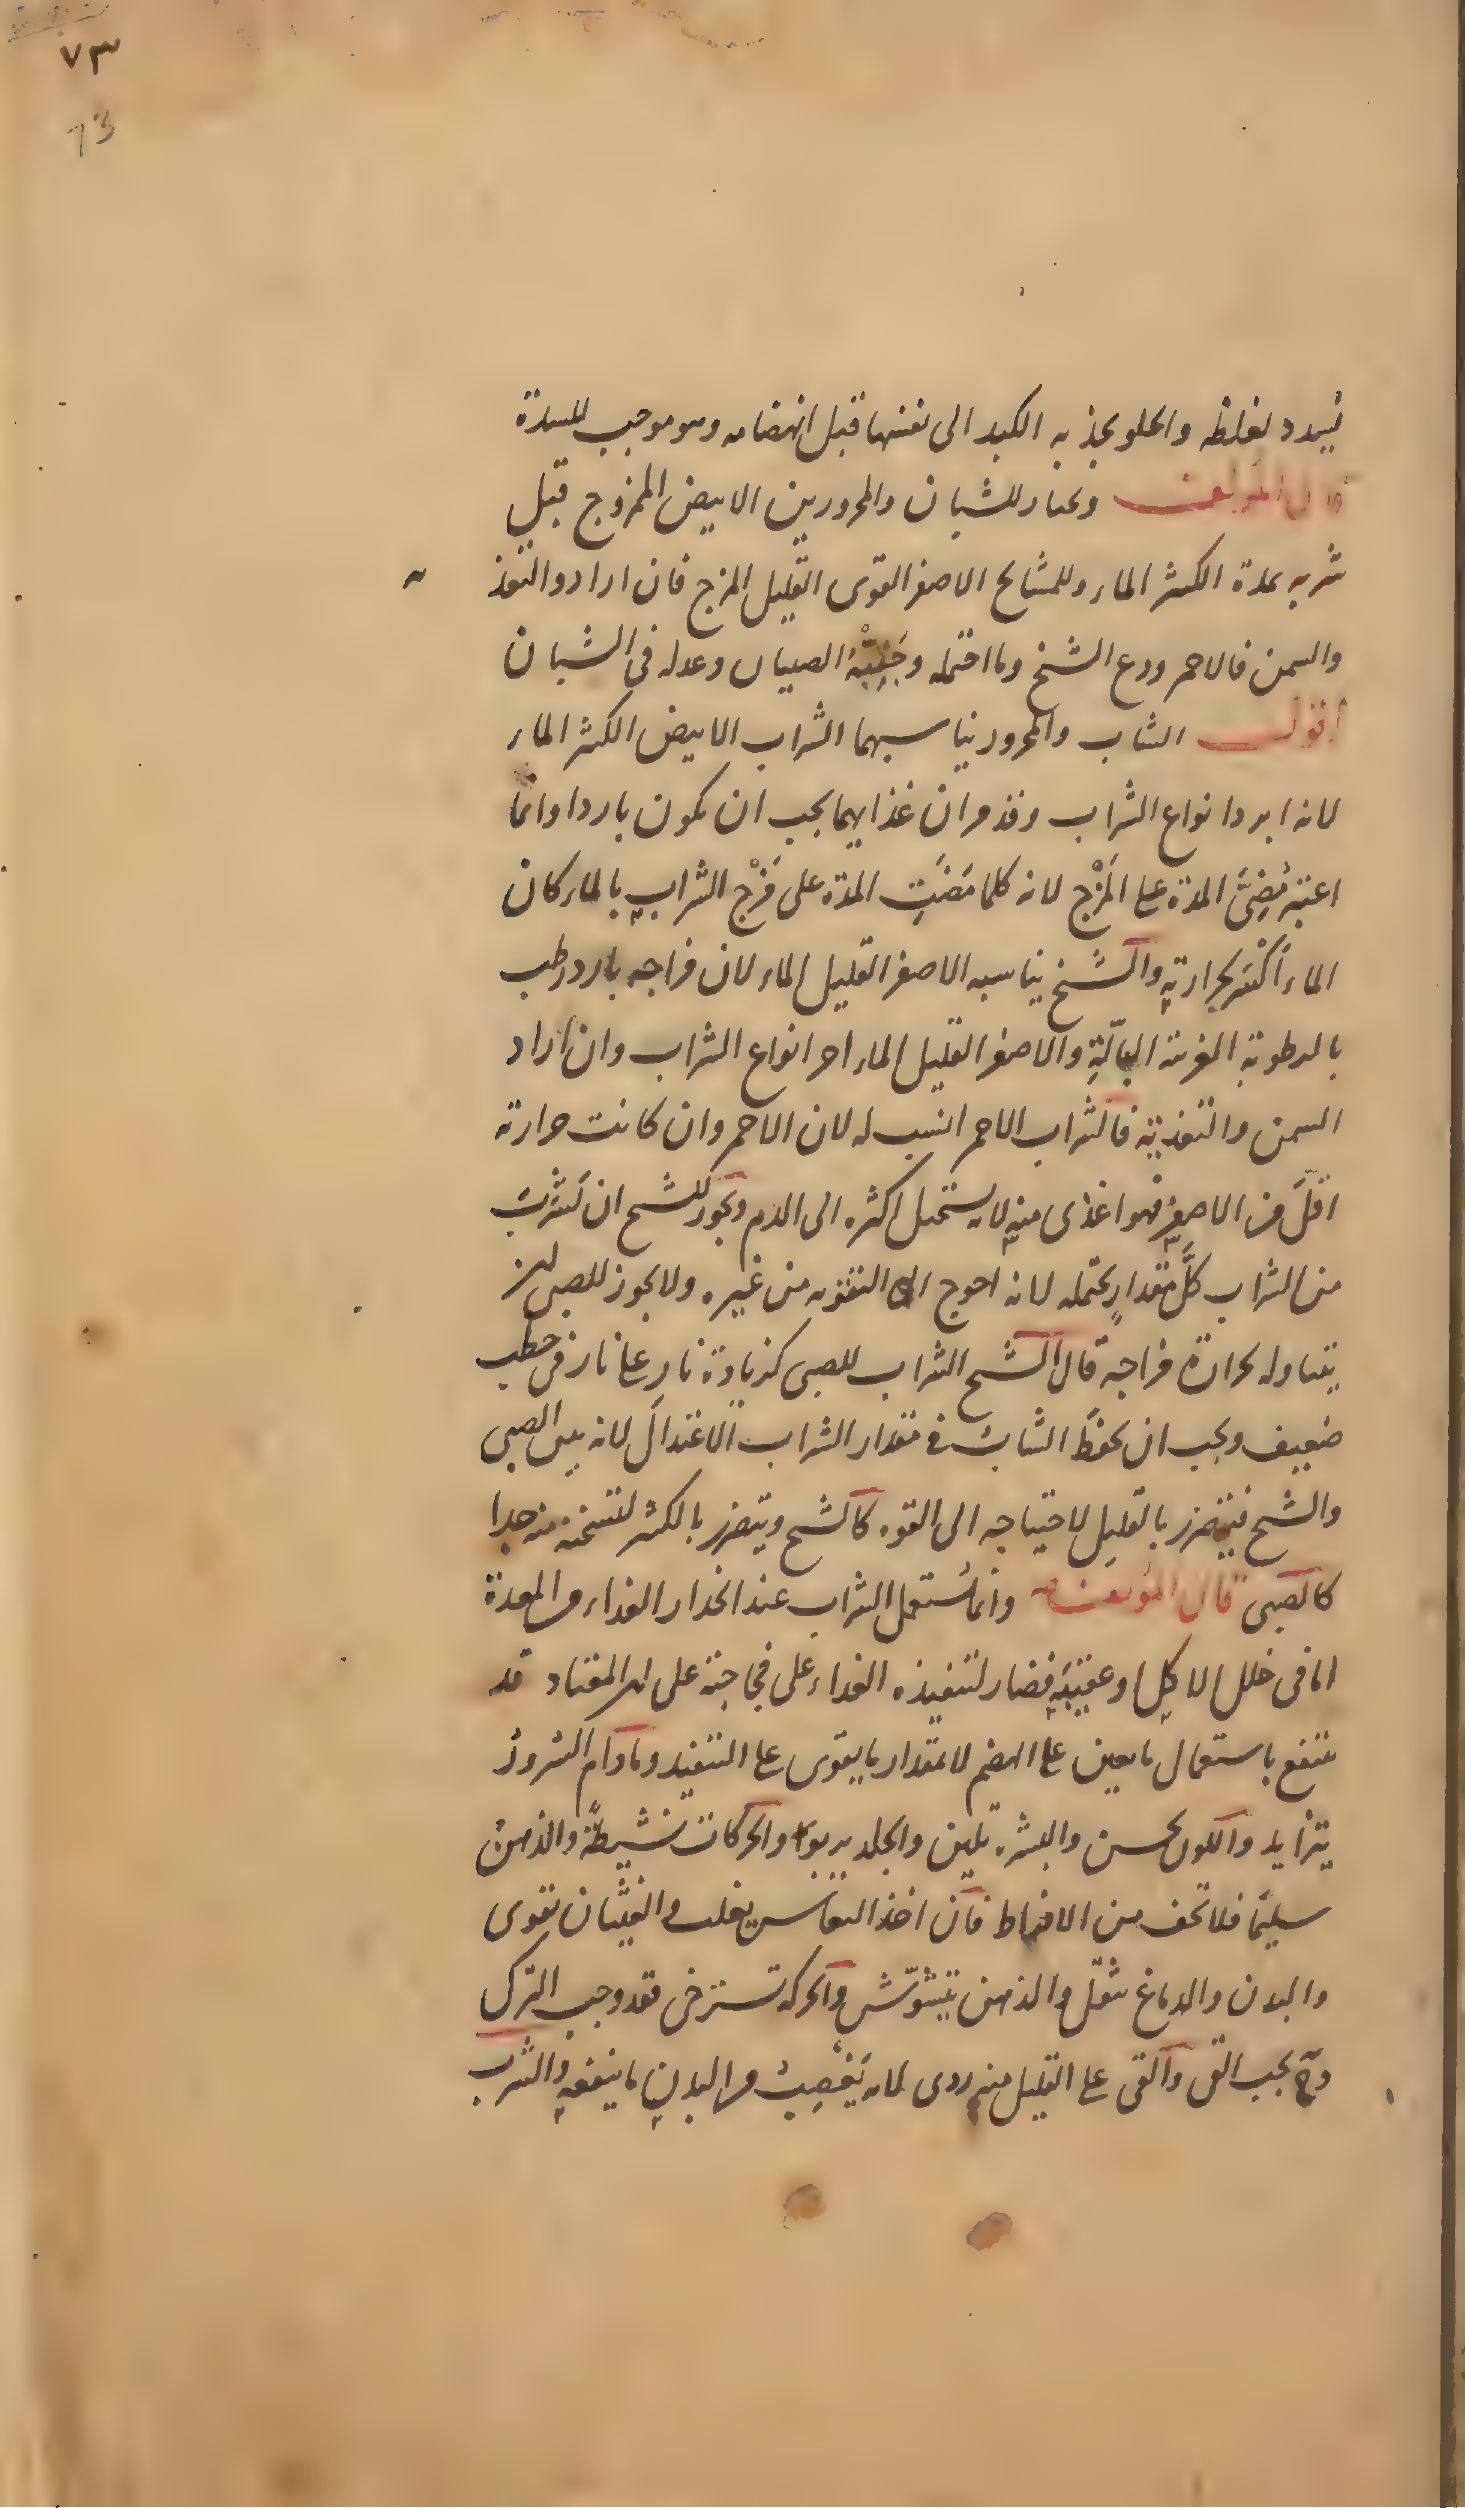 ٧٣
73
يسدد لغلظه والحلو يجذبه الكبد الى نفسها قبل انهضامه وهو موجب للسدة
قال المؤلف ويختار للشبان والمحرورين الابيض الممزوج قبل
شربه بمدة الكثير الماء وللمشايخ الاصفر القوى القليل المزج فان ارادوا التغذ
والسمن فالاحمر ودع الشيخ وما احتمله وجَنِّبْهُ الصبيان وعدله فى الشبان
اقول الشاب والمحرور يناسبهما الشراب الابيض الكثير الماء
لانه ابرد انواع الشراب وقد مر ان غذاءيهما يجب ان يكون باردا وانما
اعتبر مُضِىّ المدة على المَزْج لانه كلما مَضَتِ المدة على مَزْج الشراب بالماء كان
الماء اَكْسَر لحرارته والشيخ يناسبه الاصفر القليل الماء لان مزاجه بارد رطب
بالرطوبة الغريبة البالّةِ والاصفر القليل الماء احر انواع الشراب وان اراد
السمن والتغذية فالشراب الاحمر انسب له لان الاحمر وان كانت حرارته
اقلَّ من الاصفر فهو اغذى منه لانه يستحيل اكثره الى الدم ويجوز للشيخ ان يَشْرَبَ
من الشراب كلَّ مقدارٍ يحتمله لانه احوج الى التقوية من غيره ولا يجوز للصبى ان
يتناوله لحرارة مزاجه قال الشيخ الشراب للصبى كزيادة نارٍ على نار فى حطب
ضعيف ويجب ان يحفظ الشابُ فى مقدار الشراب الاعتدالَ لانه بين الصبى
والشيخ فيتضرر بالقليل لاحتياجه الى القوة كالشيخ ويتضرر بالكثير لتسخنه منه جدا
كالصبى قال المؤلف وانما يُستعمل الشراب عند انحدار الغذاء من المعدة
اما فى خلل الاكل او عقيبَه فضار لتنفيذه الغذاء على فجاجته على ان المعتاد قد
ينتفع باستعمال ما يعين على الهضم لا بمقدار ما يقوى على التنفيذ ومادام السرورُ
يتزايد واللون يحسن والبشرة تلين والجلد يربوا والحركات نشيطةً والذهنُ
سليمًا فلا تخف من الافراط فان اخذ النعاس يغلب والغثيان يقوى
والبدن والدماغ يثقل والذهن يتشوّش والحركة تسترخى فقد وجب الترك
وح يجب القى والقى على القليل منه ردى لانه يَغْصِبُ من البدن ما ينفعه والشرب